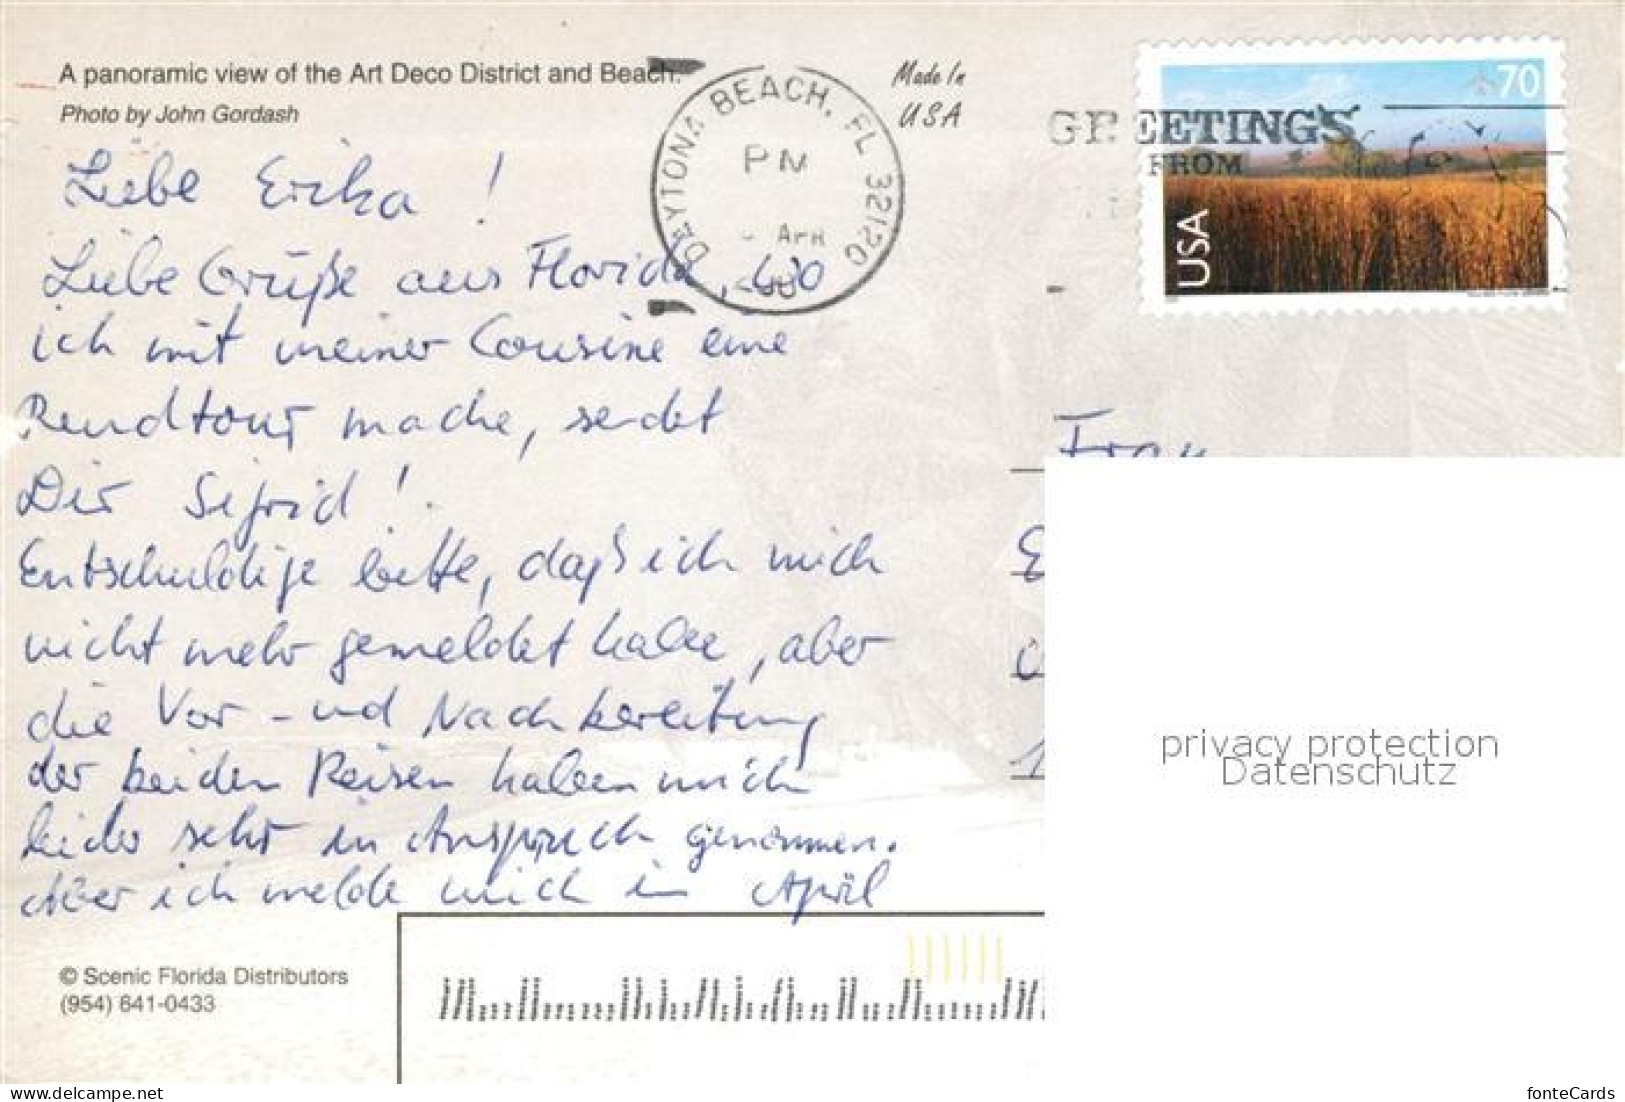 A panoramic view of the Art Deco District and Beach.
Photo by John Gordash
Made In
USA
DAYTONA BEACH, FL 32120
PM
APR
GREETINGS
FROM
70
USA
Liebe Erika !
Liebe Grüße aus Florida, wo
ich mit meiner Cousine eine
Rundtour mache, sendet
Dir Sigrid !
Entschuldige bitte, daß ich mich
nicht mehr gemeldet habe, aber
die Vor- und Nachbereitung
der beiden Reisen haben mich
leider sehr in Anspruch genommen.
Aber ich melde mich im April
Frau
privacy protection
Datenschutz
© Scenic Florida Distributors
(954) 641-0433
delcampe.net
fonteCards